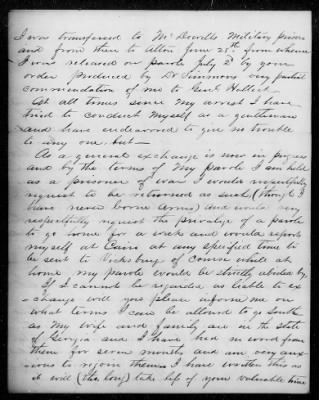 I was transferred to McDowells Military prison
and from there to Alton June 25th from whence
I was released on parole July 2d by your
order produced by Dr Simmons very partial
commendation of me to Genl Halleck.
At all times since my arrest I have
tried to conduct myself as a gentleman
and have endeavored to give no trouble
to any one, but—
As a general exchange is now in progress
and by the terms of my parole I am held
as a prisoner of war I would respectfully
request to be returned as such, (though I
have never borne arms) and would very
respectfully request the privalige of a parole
to go home for a week and would report
myself at Cairo at any specified time to
be sent to Vicksburg of course while at
home my parole would be strictly abided by
If I cannot be regarded as liable to ex-
change will you please inform me on
what terms I can be allowed to go South
as my wife and family are in the state
of Georgia and I have had no word from
them for seven months and am very anx-
ious to rejoin them. I have written this as
it will (too long) take less of your valuable time